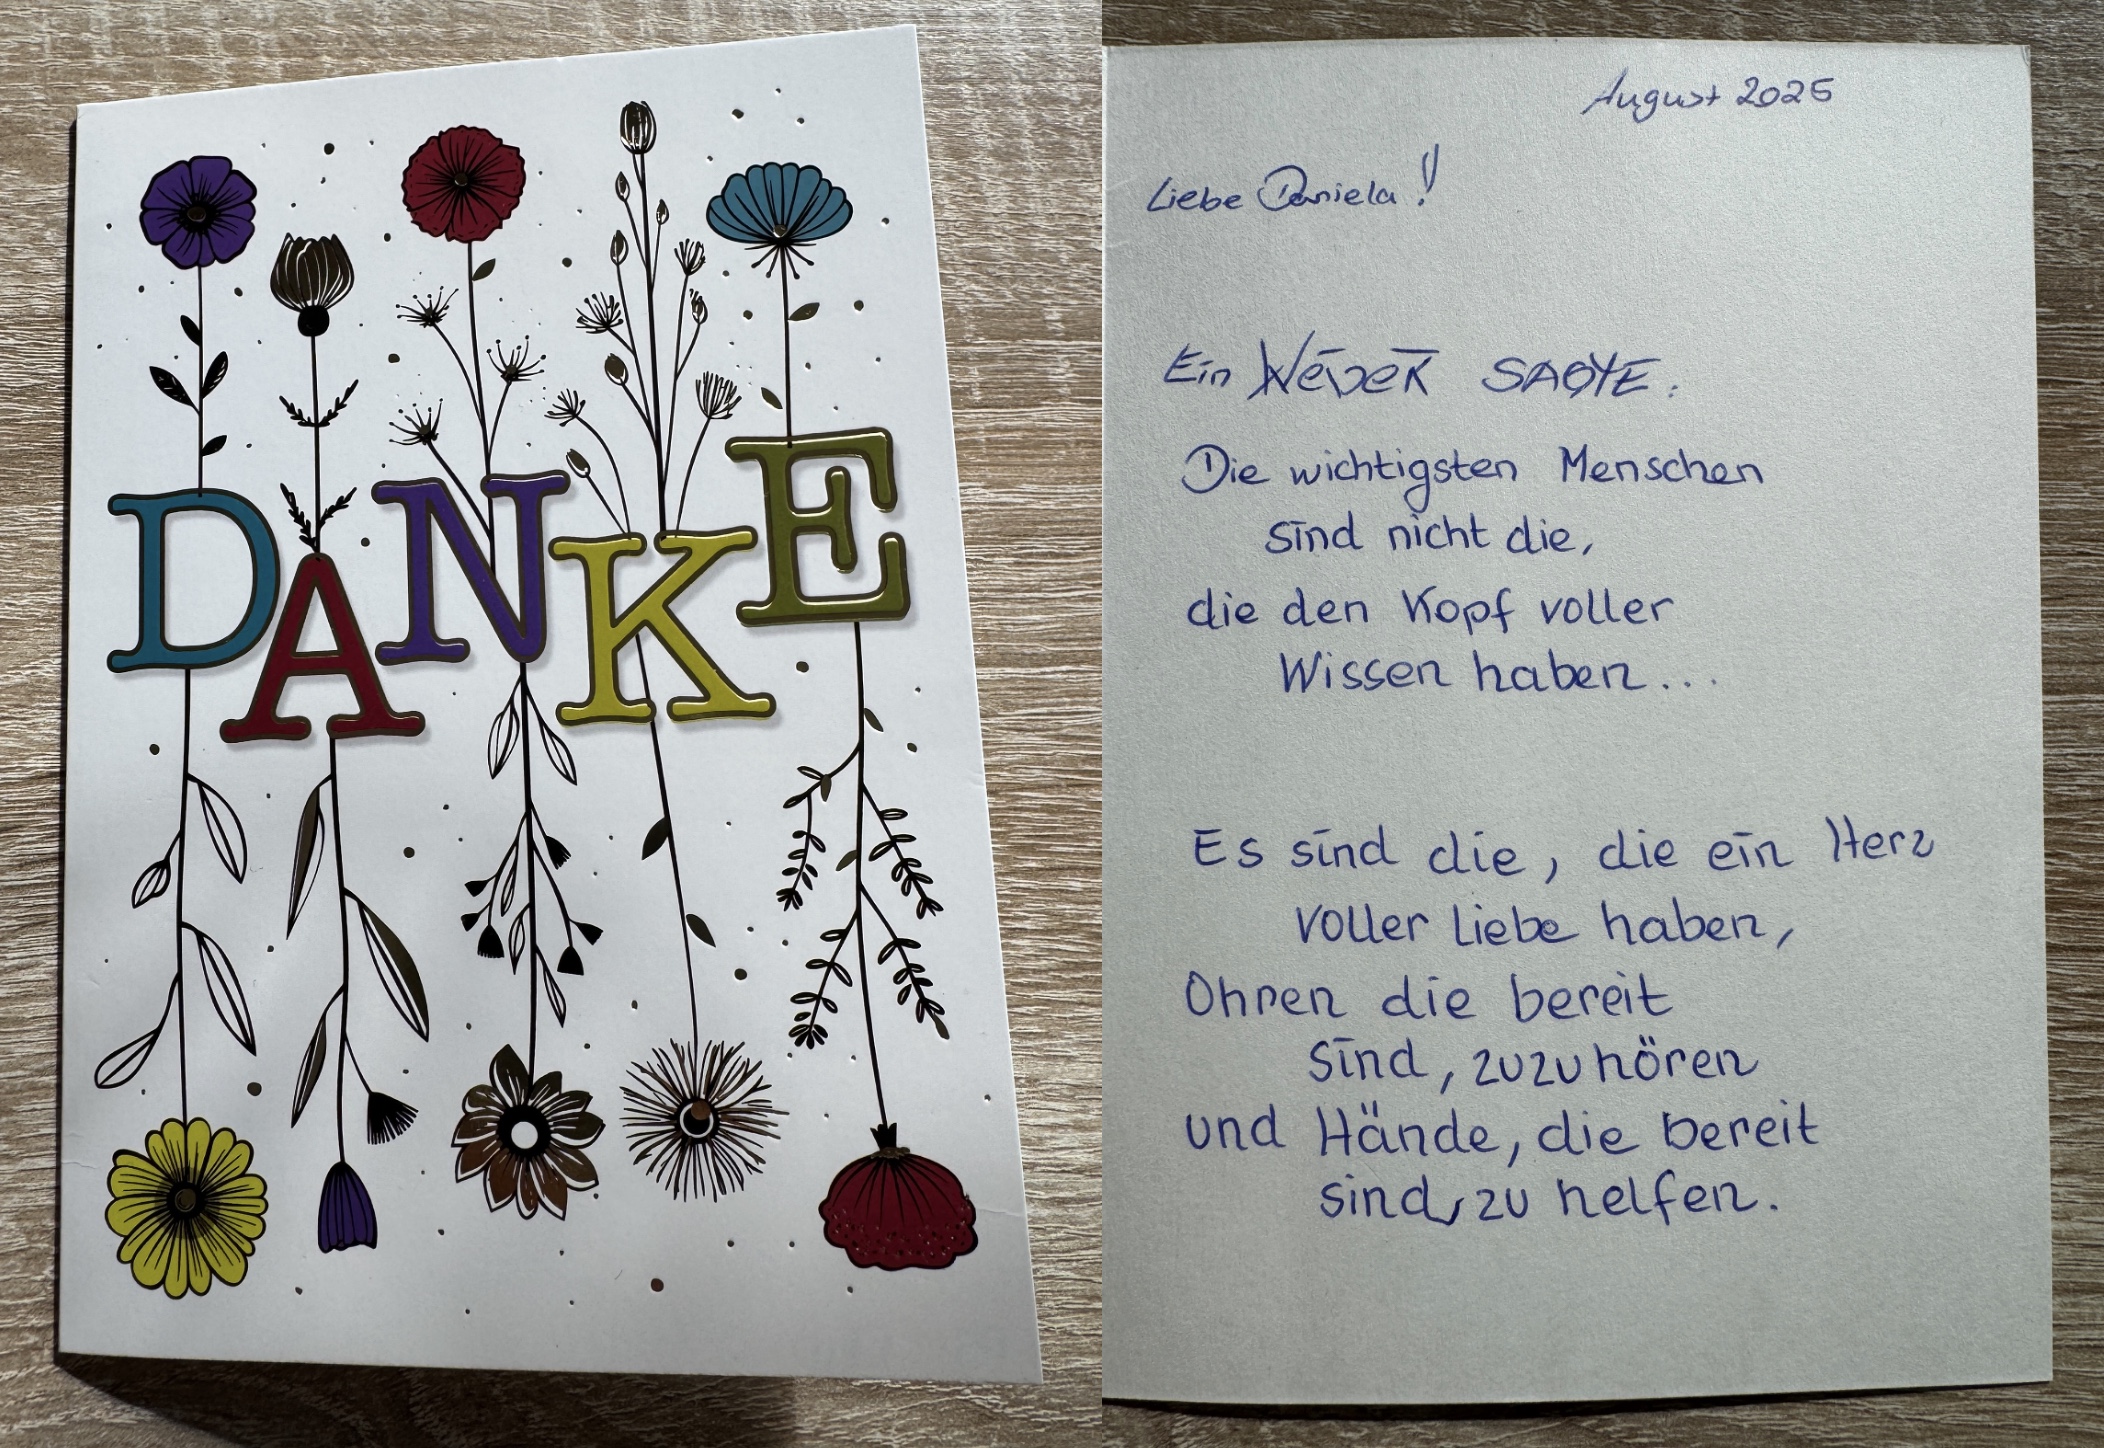 DANKE
August 2025
Liebe Daniela!
Ein SAGTE:
Die wichtigsten Menschen
sind nicht die,
die den Kopf voller
Wissen haben...
Es sind die, die ein Herz
voller Liebe haben,
Ohren die bereit
sind, zuzuhören
und Hände, die bereit
sind, zu helfen.